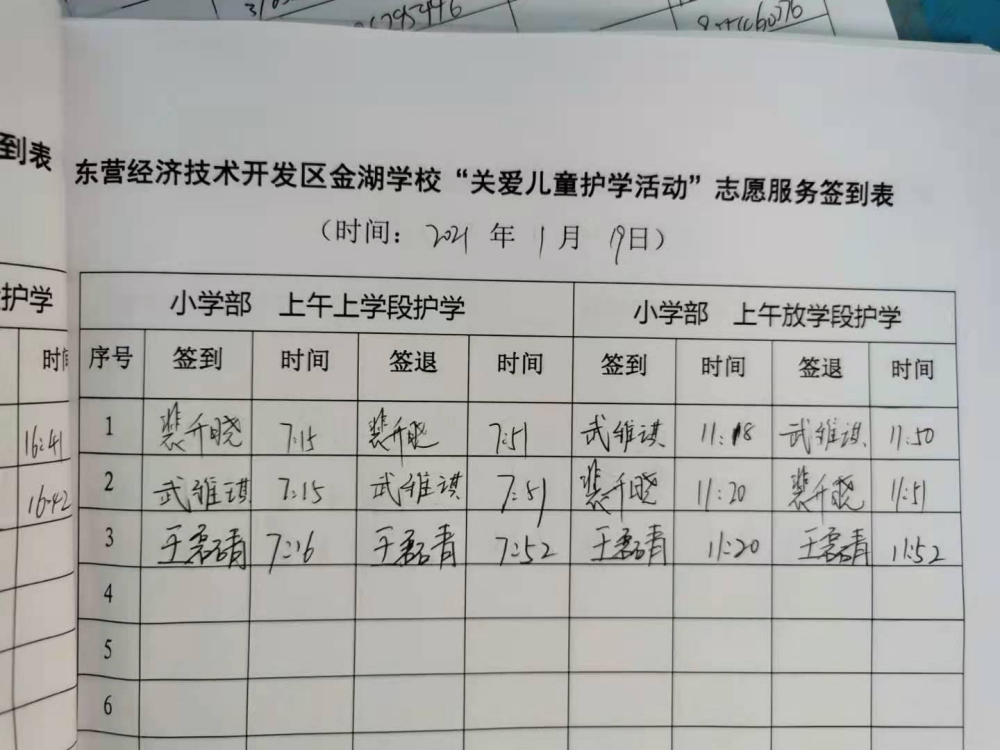 6295446
到表
东营经济技术开发区金湖学校“关爱儿童护学活动”志愿服务签到表
（时间： 2021 年 1 月 19日）
护学
小学部 上午上学段护学 小学部 上午放学段护学
时间 序号 签到 时间 签退 时间 签到 时间 签退 时间
16:41 1 裴千晓 7:15 裴千晓 7:51 武维琪 11:18 武维琪 11:50
16:42 2 武维琪 7:15 武维琪 7:51 裴千晓 11:20 裴千晓 11:51
3 王磊青 7:16 王磊青 7:52 王磊青 11:20 王磊青 11:52
4
5
6